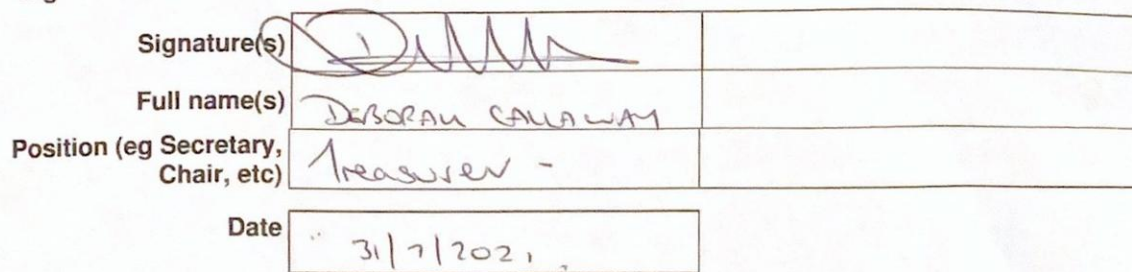 Signature(s)
Full name(s) DEBORAH CALLAWAY
Position (eg Secretary,
Chair, etc) Treasurer -
Date 31/7/2021